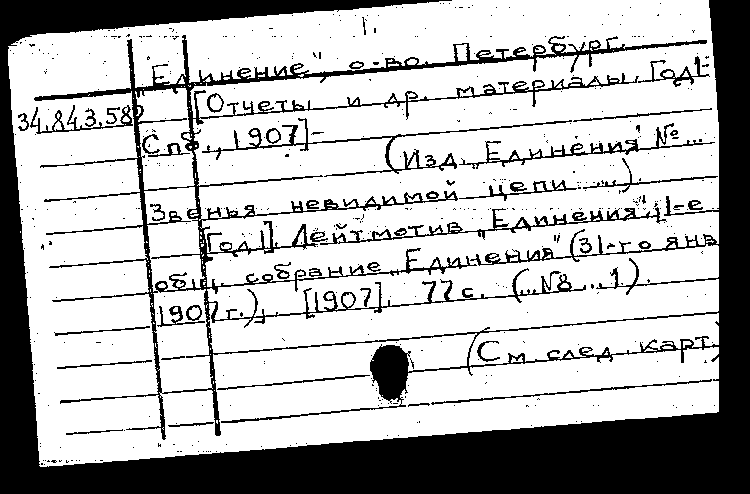 1.
„Единение", о-во. Петербург.
34.843.582 [Отчеты и др. материалы. Год I-
Спб., 1907]-
(Изд. „Единения" № ...
Звенья невидимой цепи ...).
[Год I]. Лейтмотив „Единения", 1-е
общ. собрание „Единения" (31-го янв
1907 г.). [1907]. 77 с. (...№8 ...1).
(См. след. карт.)